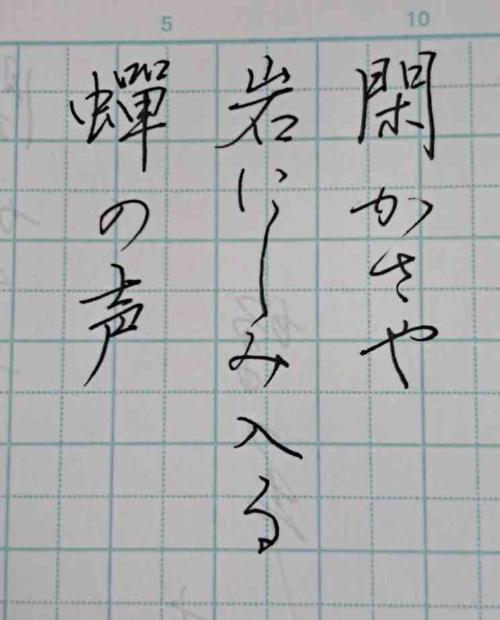 5 10
閑かさや
岩にしみ入る
蟬の声